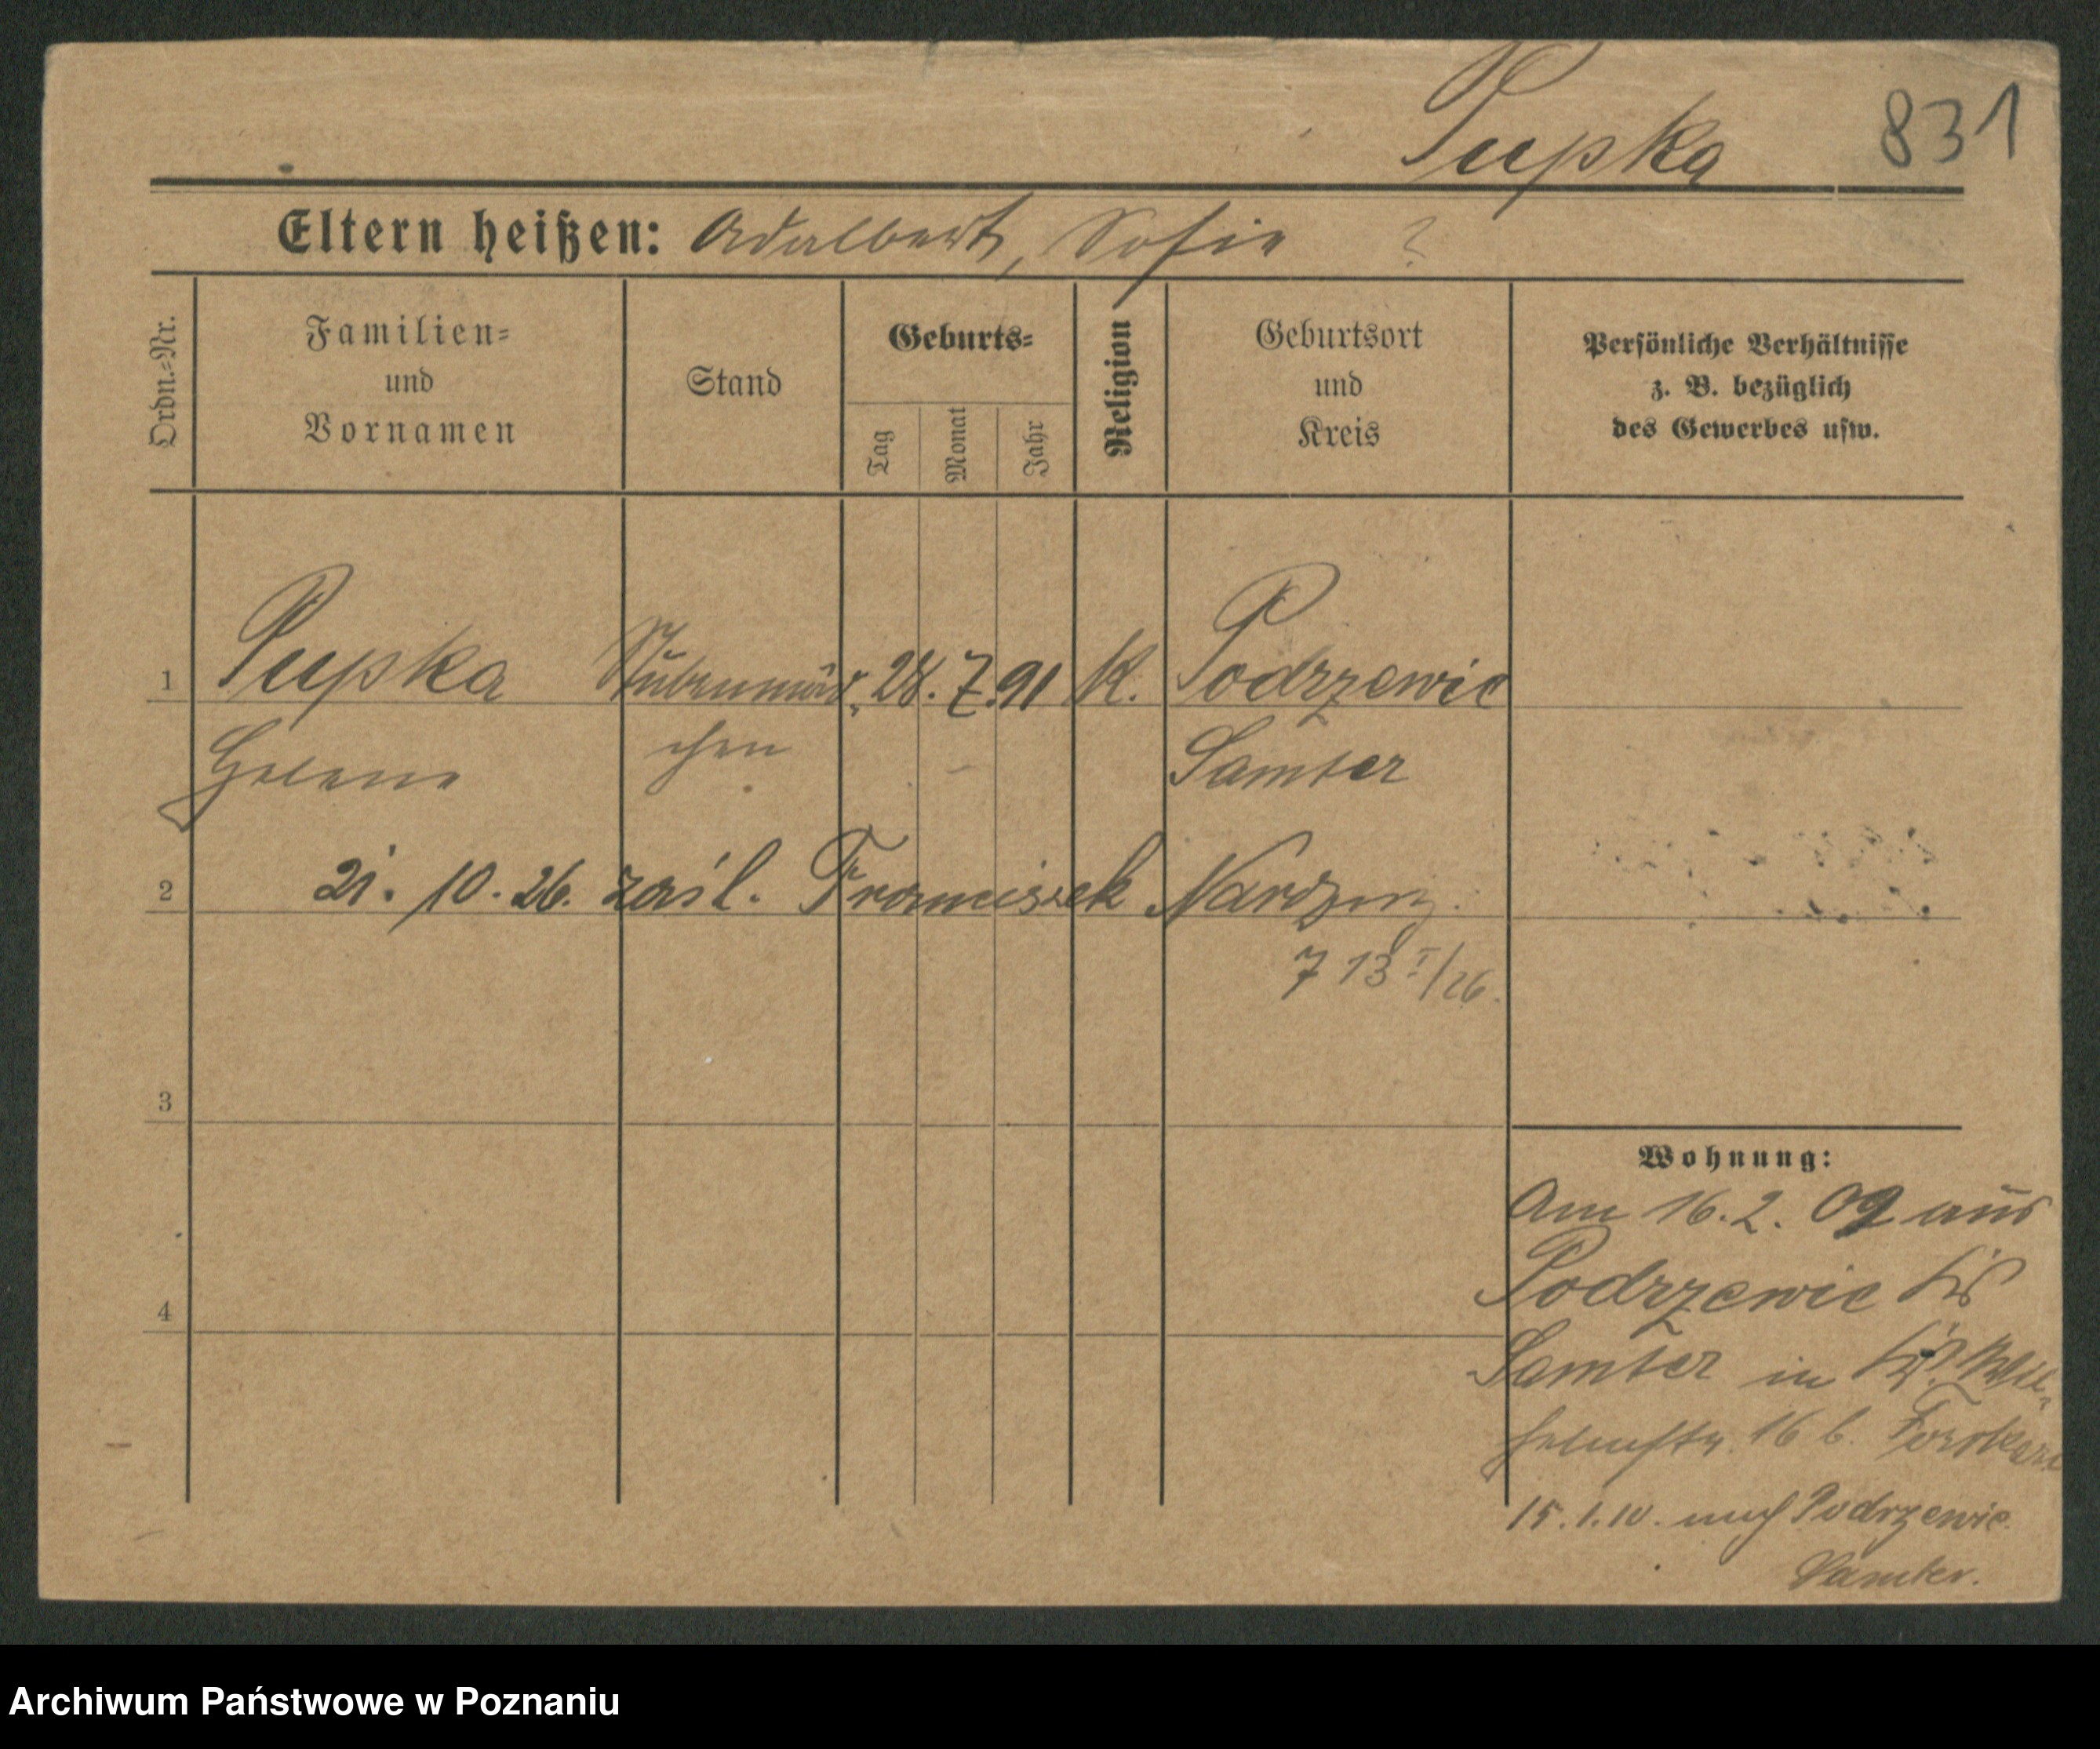 Pupka 831
Eltern heißen: Adalbert, Sofie ?
Ordn.-Nr.
Familien-
und
Vornamen
Stand
Geburts-
Tag
Monat
Jahr
Religion
Geburtsort
und
Kreis
Persönliche Verhältnisse
z. B. bezüglich
des Gewerbes usw.
1 Pupka Stubenmäd- 28. 7. 91 K. Podrzewie
Helene chen Samter
2 21. 10. 26. zaśl. Franciszek
7 13 I/26.
3
4
Wohnung:
Am 16. 2. 09 aus
Podrzewie Krs
Samter in
helmstr. 16 b.
15. 1. 10. nach Podrzewie
Samter.
Archiwum Państwowe w Poznaniu